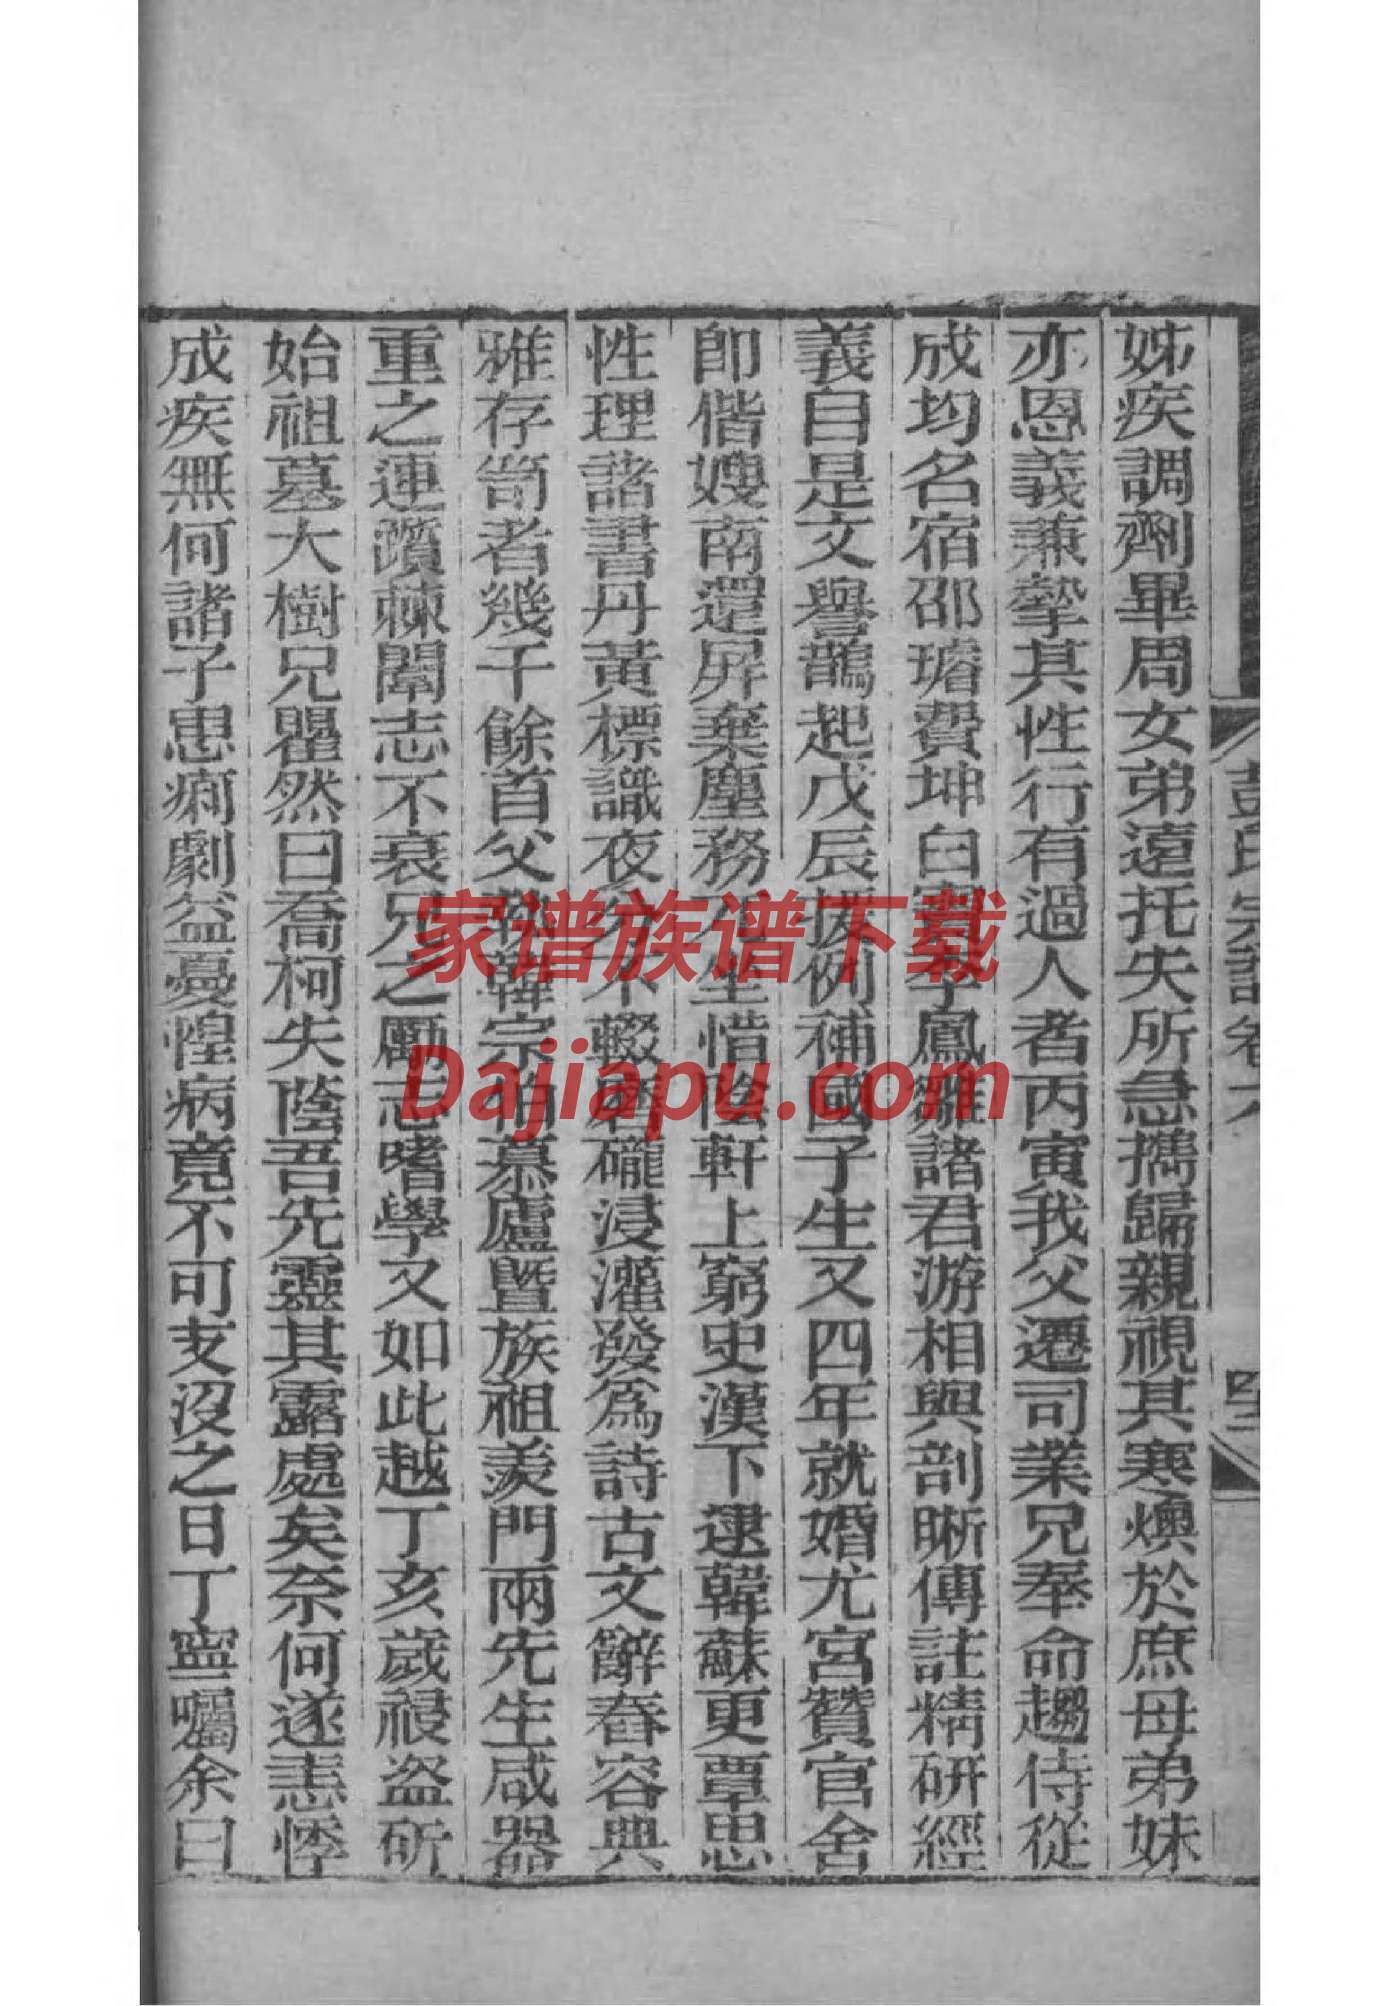 彭氏宗譜卷六
姊疾調劑畢周女弟遠托失所急攜歸親視其寒燠於庶母弟妹
亦恩義兼摯其性行有過人者丙寅我父遷司業兄奉命趨侍從
成均名宿邵璿費坤白李鳳雛諸君游相與剖晰傳註精研經
義自是文譽鵲起戊辰援例補國子生又四年就婚尤宮贊官舍
即偕嫂南還屏棄塵務兀坐惜陰軒上窮史漢下逮韓蘇更覃思
性理諸書丹黃標識夜分不輟磨礲浸灌發為詩古文辭舂容典
雅存笥者幾千餘首父執韓宗伯慕廬暨族祖羨門兩先生咸器
重之連躓棘闈志不衰兄之勵志嗜學又如此越丁亥歲祲盜斫
始祖墓大樹兄瞿然曰喬柯失蔭吾先靈其露處矣奈何遂恚悸
成疾無何諸子患痢劇益憂惶病竟不可支沒之日丁寧囑余曰
家谱族谱下载
Dajiapu.com